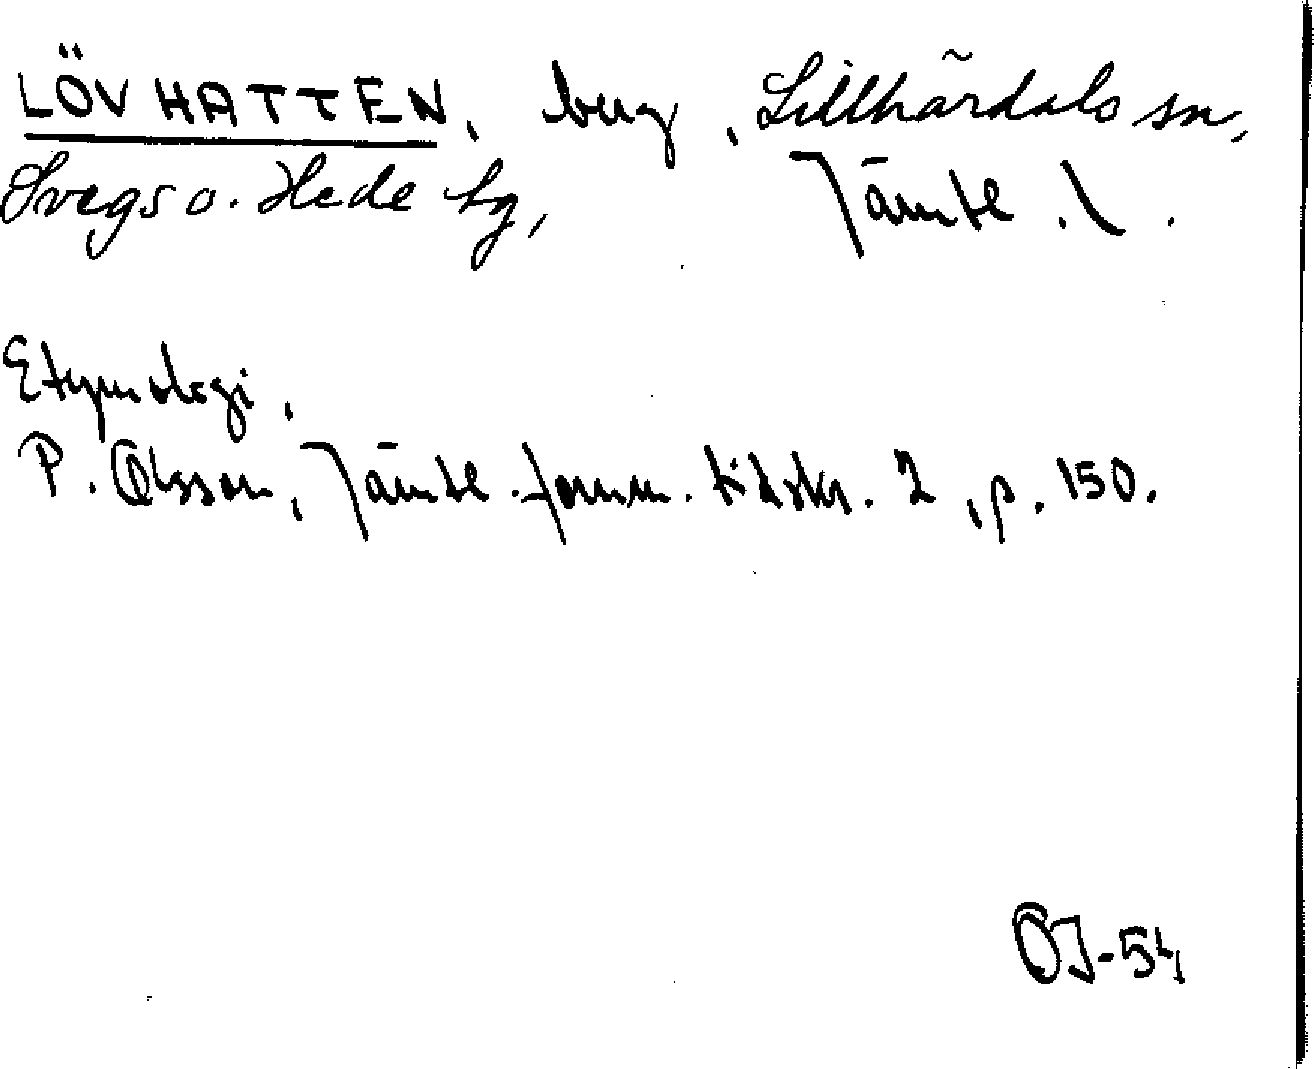 LÖVHATTEN, berg, Lillhärdals sn,
Svegs o. Hede tg, Jämtl. l.
Etymologi.
P. Olsson, Jämtl. fornm. tidskr. 2, p. 150.
OJ-54